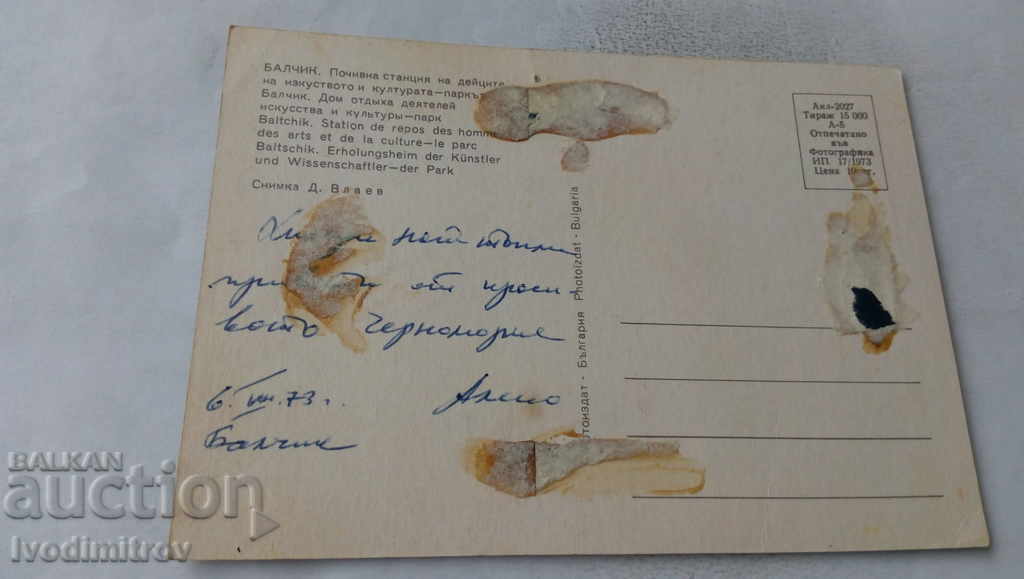 БАЛЧИК. Почивна станция на дейците
на изкуството и културата—паркът
Балчик. Дом отдыха деятелей
искусства и культуры—парк
Baltchik. Station de repos des hommes
des arts et de la culture—le parc
Baltschik. Erholungsheim der Künstler
und Wissenschaftler—der Park
Снимка Д. Влаев
от краси
вото Черноморие
6. VIII. 73 г.
Балчик
тоиздат - България Photoizdat - Bulgaria
Акл-2027
Тираж 15 000
А-5
Отпечатано
във
Фотографика
ИП 17/1973
Цена
BALKAN
auction
ivodimitrov